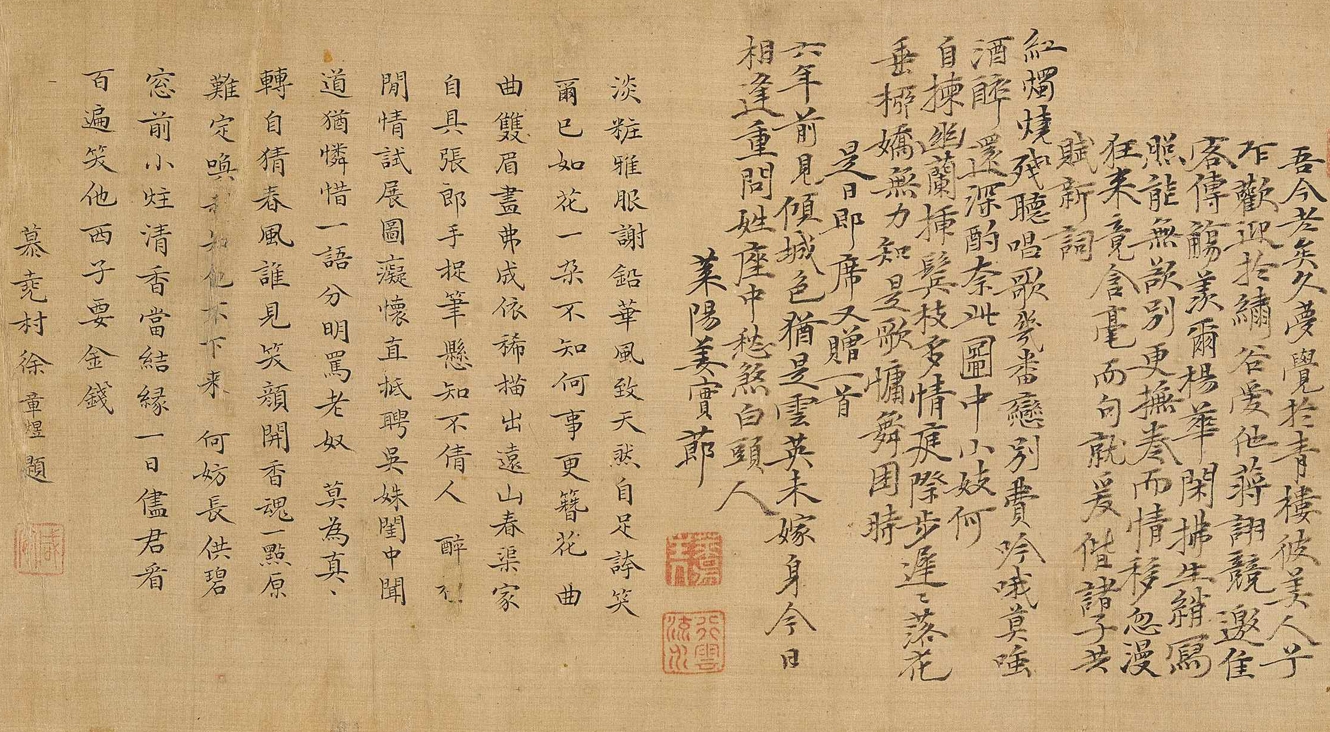 吾今老矣久夢覺於青樓彼美人兮
乍歡迎於繡谷愛他蔣詡競邀佳
客傳觴羨爾楊華閑拂生綃寫
照能無欲別更撫卷而情移忽漫
狂來竟含毫而句就爰偕諸子共
賦新詞
紅燭燒殘聽唱歌幾番戀別費吟哦莫嗤
酒醉還深酌奈此圖中小妓何
自揀幽蘭插鬢枝多情庭際步遲遲落花
垂柳嬌無力知是歌慵舞困時
是日即席又贈一首
六年前見傾城色猶是雲英未嫁身今日
相逢重問姓座中愁煞白頭人
萊陽姜實節
淡粧雅服謝鉛華風致天然自足誇笑
爾已如花一朵不知何事更簪花 曲
曲雙眉畫弗成依稀描出遠山春渠家
自具張郎手捉筆懸知不倩人 醉
閒情試展圖癡懷直抵聘吳姝閨中聞
道猶憐惜一語分明罵老奴 莫為真真
轉自猜春風誰見笑顏開香魂一點原
難定喚 他不下來 何妨長供碧
窓前小炷清香當結緣一日儘君看
百遍笑他西子要金錢
慕堯村徐章煜題
行雲流水